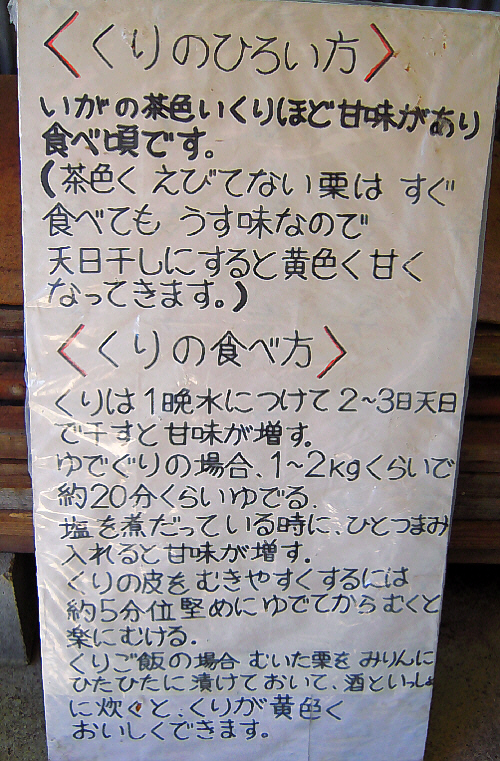 〈くりのひろい方〉
いがの茶色いくりほど甘味があり
食べ頃です。
(茶色く えびてない栗は すぐ
食べても うす味なので
天日干しにすると黄色く甘く
なってきます。)
〈くりの食べ方〉
くりは1晩水につけて2~3日天日
で干すと甘味が増す。
ゆでぐりの場合、1~2kgくらいで
約20分くらいゆでる.
塩を煮だっている時に、ひとつまみ
入れると甘味が増す.
くりの皮を むきやすくするには
約5分位堅めにゆでてからむくと
楽にむける.
くりご飯の場合 むいた栗を みりんに
ひたひたに漬けておいて、酒といっしょ
に炊くと、くりが黄色く
おいしくできます。